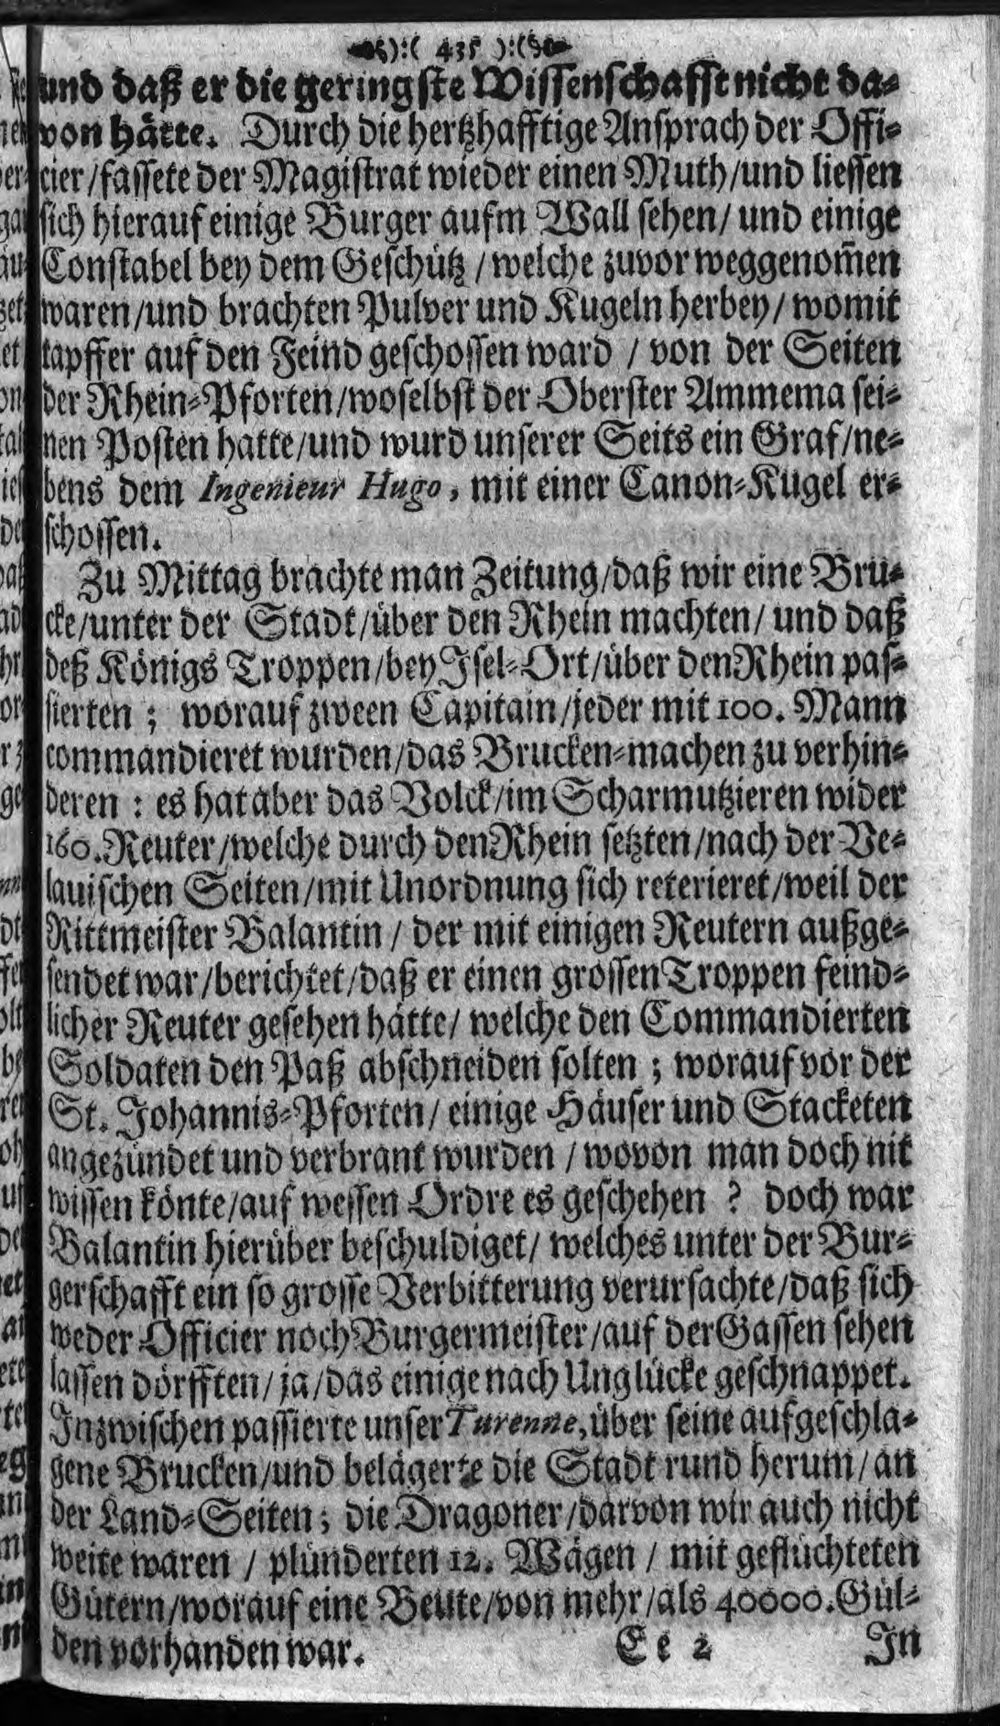 ):( 435 ):(
und daß er die geringste Wissenschafft nicht da-
von hätte. Durch die hertzhafftige Ansprach der Offi-
cier/fassete der Magistrat wieder einen Muth/und liessen
sich hierauf einige Burger aufm Wall sehen/ und einige
Constabel bey dem Geschütz / welche zuvor weggenom̄en
waren/und brachten Pulver und Kugeln herbey/ womit
tapffer auf den Feind geschossen ward / von der Seiten
der Rhein-Pforten/woselbst der Oberster Ammema sei-
nen Posten hatte/und wurd unserer Seits ein Graf/ne-
bens dem Ingenieur Hugo, mit einer Canon-Kugel er-
schossen.
Zu Mittag brachte man Zeitung/daß wir eine Bru-
cke/unter der Stadt/über den Rhein machten/ und daß
deß Königs Troppen/bey Isel-Ort/über den Rhein pas-
sierten ; worauf zween Capitain/jeder mit 100. Mann
commandieret wurden/das Brucken-machen zu verhin-
deren : es hat aber das Volck/im Scharmutzieren wider
160. Reuter/welche durch den Rhein setzten/nach der Ve-
lauischen Seiten/mit Unordnung sich reterieret/weil der
Rittmeister Balantin / der mit einigen Reutern außge-
sendet war/berichtet/daß er einen grossen Troppen feind-
licher Reuter gesehen hätte/ welche den Commandierten
Soldaten den Paß abschneiden solten ; worauf vor der
St. Johannis-Pforten/ einige Häuser und Stacketen
angezündet und verbrant wurden / wovon man doch nit
wissen könte/auf wessen Ordre es geschehen ? doch war
Balantin hierüber beschuldiget/ welches unter der Bur-
gerschafft ein so grosse Verbitterung verursachte/daß sich
weder Officier noch Burgermeister/auf der Gassen sehen
lassen dörfften/ ja/das einige nach Unglücke geschnappet.
Inzwischen passierte unser Turenne, über seine aufgeschla-
gene Brucken/und belägerte die Stadt rund herum/ an
der Land-Seiten; die Dragoner/darvon wir auch nicht
weite waren / plünderten 12. Wägen / mit geflüchteten
Gütern/worauf eine Beute/von mehr/als 40000. Gül-
den vorhanden war.
Ee 2 In